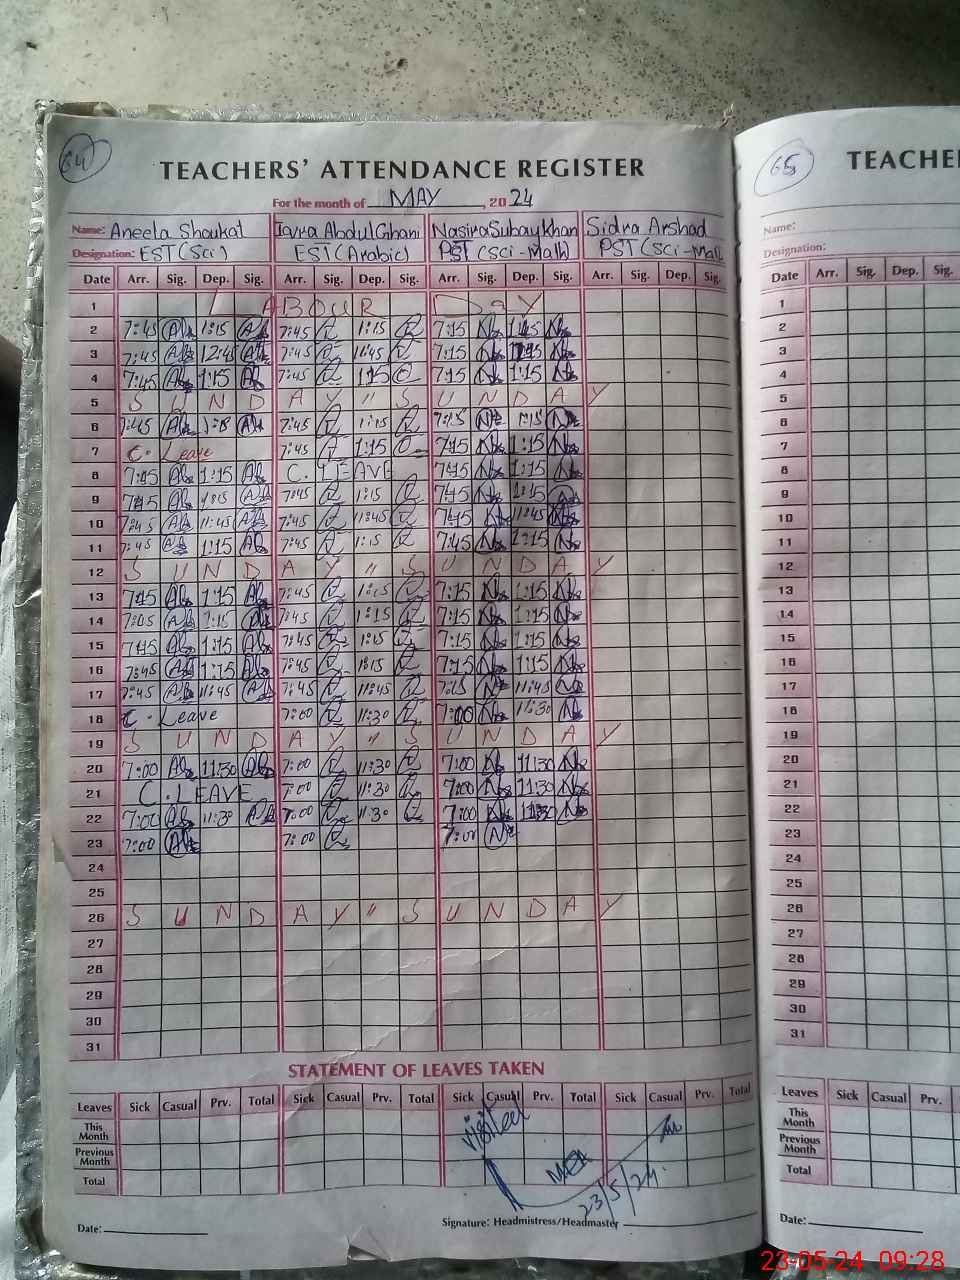 64
TEACHERS' ATTENDANCE REGISTER
For the month of MAY, 2024
Name: Aneela Shoukat Iqra Abdul Ghani Nasira Subay Khan Sidra Arshad
Designation: EST (Sci) EST (Arabic) PST (Sci-Math) PST (Sci-Math
Date Arr. Sig. Dep. Sig. Arr. Sig. Dep. Sig. Arr. Sig. Dep. Sig. Arr. Sig. Dep. Sig.
1 LABOUR DAY
2 7:45 1:15 7:45 1:15 7:15
3 7:45 12:45 7:45 11:45 7:15
4 7:45 1:15 7:45 1:15 7:15 1:15
5 SUNDAY " SUNDAY
6 7:45 7:45 1:15 1:15
7 C. Leave 7:45 1:15 1:15
8 1:15 C. LEAVE 1:15
9 7:45 1:15 7:45 1:15 7:45 1:15
10 7:45 11:45 7:45 11:45 7:45 11:45
11 7:45 1:15 7:45 1:15 7:45 1:15
12 SUNDAY " SUNDAY
13 1:15 7:45 7:15 1:15
14 7:45 1:15 7:15 1:15
15 7:45 1:15 7:45 1:15 7:15 1:15
16 7:45 1:15 7:45 1:15 7:15 1:15
17 7:45 11:45 7:45 11:45 7:15 11:45
18 C. Leave 7:00 11:30 7:00 11:30
19 SUNDAY " SUNDAY
20 7:00 11:30 7:00 11:30 7:00 11:30
21 C. LEAVE 7:00 11:30 7:00 11:30
22 7:00 11:30 7:00 11:30 7:00 11:30
23 7:00 7:00 7:00
24
25
26 SUNDAY " SUNDAY
27
28
29
30
31
STATEMENT OF LEAVES TAKEN
Leaves Sick Casual Prv. Total Sick Casual Prv. Total Sick Casual Prv. Total Sick Casual Prv. Total
This Month
Previous Month
Total
Visited
MEA
23/5/24
Date:
Signature: Headmistress/Headmaster
65
TEACHE
Name:
Designation:
Date Arr. Sig. Dep. Sig.
1
2
3
4
5
6
7
8
9
10
11
12
13
14
15
16
17
18
19
20
21
22
23
24
25
26
27
28
29
30
31
Leaves Sick Casual Prv.
This Month
Previous Month
Total
Date:
23-05-24 09:28